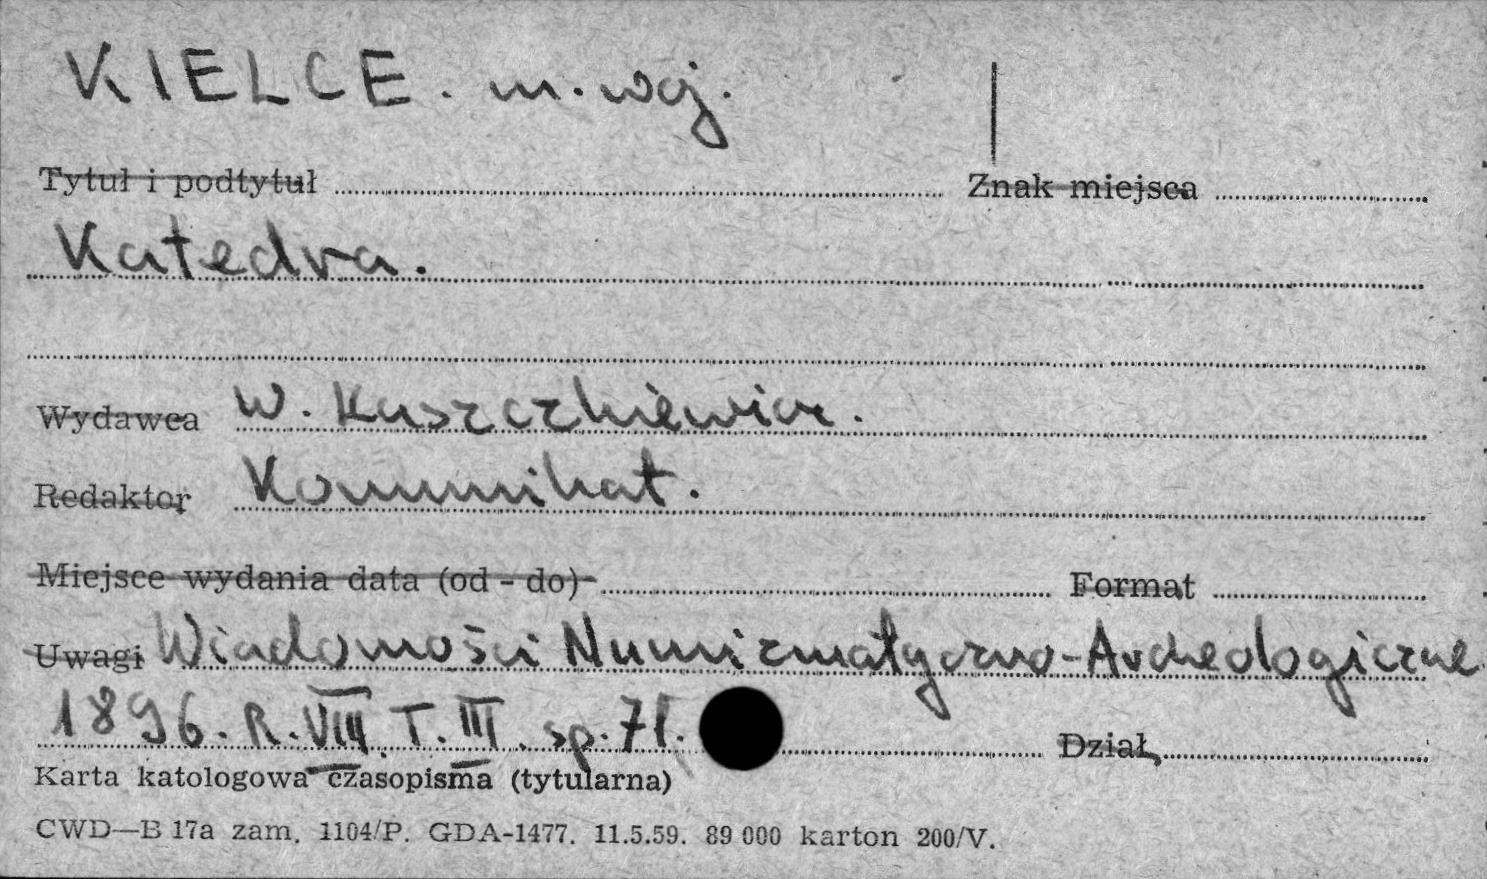 KIELCE. m. woj.
Tytuł i podtytuł Znak miejsca
Katedra.
Wydawca W. Kuszczkiewicz.
Redaktor Kommunikat.
Miejsce wydania data (od - do) Format
Uwagi Wiadomości Numizmatyczno-Archeologiczne
1896. R. VIII. T. III. sp. 71.
Dział
Karta katologowa czasopisma (tytularna)
CWD—B 17a zam. 1104/P. GDA-1477. 11.5.59. 89 000 karton 200/V.